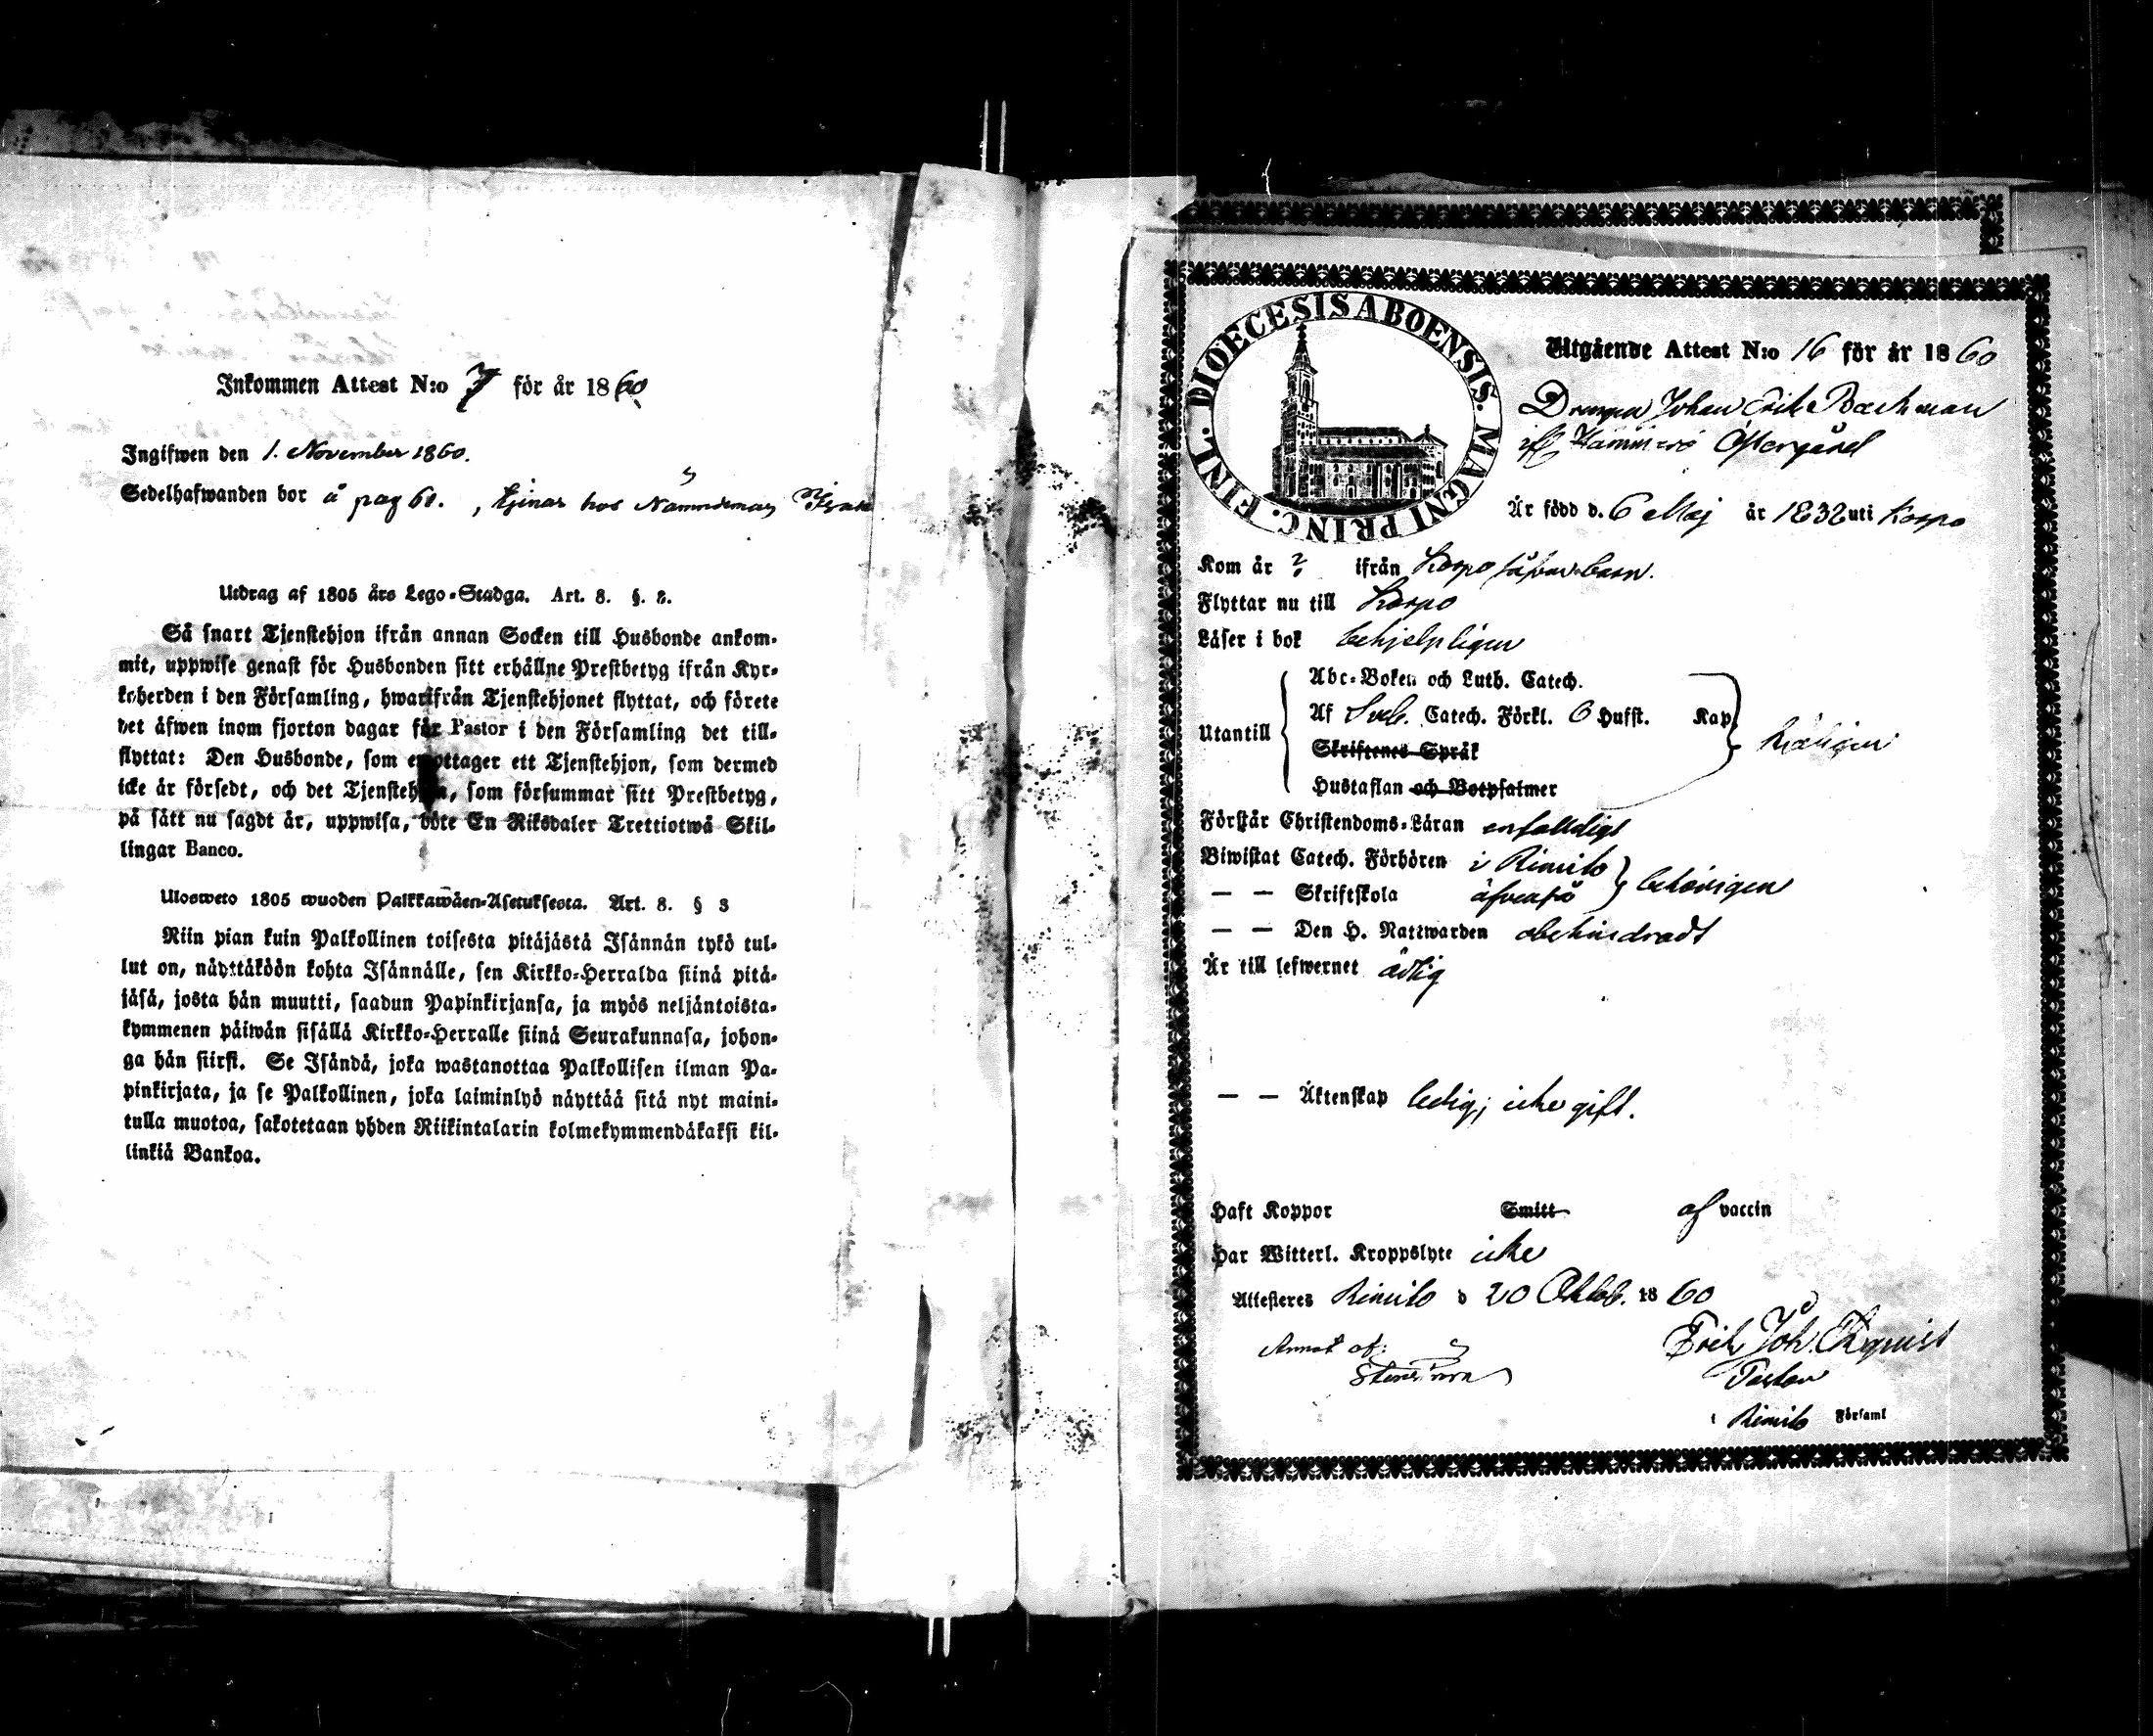 Inkommen Attest N:o 7 för år 1860
Ingifwen den 1. November 1860.
Sedelhafwanden bor å pag 60. , tjenar hos Nämndeman
Utdrag af 1805 års Lego-Stadga. Art. 8. §. 3.
Så snart Tjenstehjon ifrån annan Socken till Husbonde ankom-
mit, uppwise genast för Husbonden sitt erhållne Prestbetyg ifrån Kyr-
koherden i den Församling, hwarifrån Tjenstehjonet flyttat, och förete
det äfwen inom fjorton dagar för Pastor i den Församling det till-
flyttat: Den Husbonde, som emottager ett Tjenstehjon, som dermed
icke är försedt, och det Tjenstehjon, som försummar sitt Prestbetyg,
på sätt nu sagdt är, uppwisa, böte En Riksdaler Trettiotwå Skil-
lingar Banco.
Ulosweto 1805 wuoden Palkkawäen-Asetuksesta. Art. 8. § 3
Niin pian kuin Palkollinen toisesta pitäjästä Isännän tykö tul-
lut on, näyttäköön kohta Isännälle, sen Kirkko-Herralda siinä pitä-
jäsä, josta hän muutti, saadun Papinkirjansa, ja myös neljäntoista-
kymmenen päiwän sisällä Kirkko-Herralle siinä Seurakunnasa, johon-
ga hän siirsi. Se Isändä, joka wastanottaa Palkollisen ilman Pa-
pinkirjata, ja se Palkollinen, joka laiminlyö näyttää sitä nyt maini-
tulla muotoa, sakotetaan yhden Riikintalarin kolmekymmendäkaksi kil-
linkiä Bankoa.
DIOECESIS ABOENSIS. MAGNI PRINC. FINL.
Utgående Attest N:o 16 för år 1860
Drängen Johan Erik Backman
ifr Hammarö Östergård
Är född d. 6 Maj år 1832 uti Korpo
Kom år ? ifrån Korpo såsom barn.
Flyttar nu till Korpo
Läser i bok behjelpligen
Abc-Boken och Luth. Catech.
Utantill Af Sveb. Catech. Förkl. 6 Hufst. Kap. hjelpligen
Skriftenes Språk
Hustaflan och Botpsalmer
Förstår Christendoms-Läran enfaldigt
Biwistat Catech. Förhören i Rimito
— — Skriftskola äfvenså behörigen
— — Den H. Nattwarden obehindradt
Är till lefwernet ärlig
— — Äktenskap ledig; icke gift.
Haft Koppor Smitt af vaccin
Har Witterl. Kroppslyte icke
Attesteres Rimito d 20 Oktob. 1860
Annot. af:
Erik Joh.
Pastor
i Rimito Församl